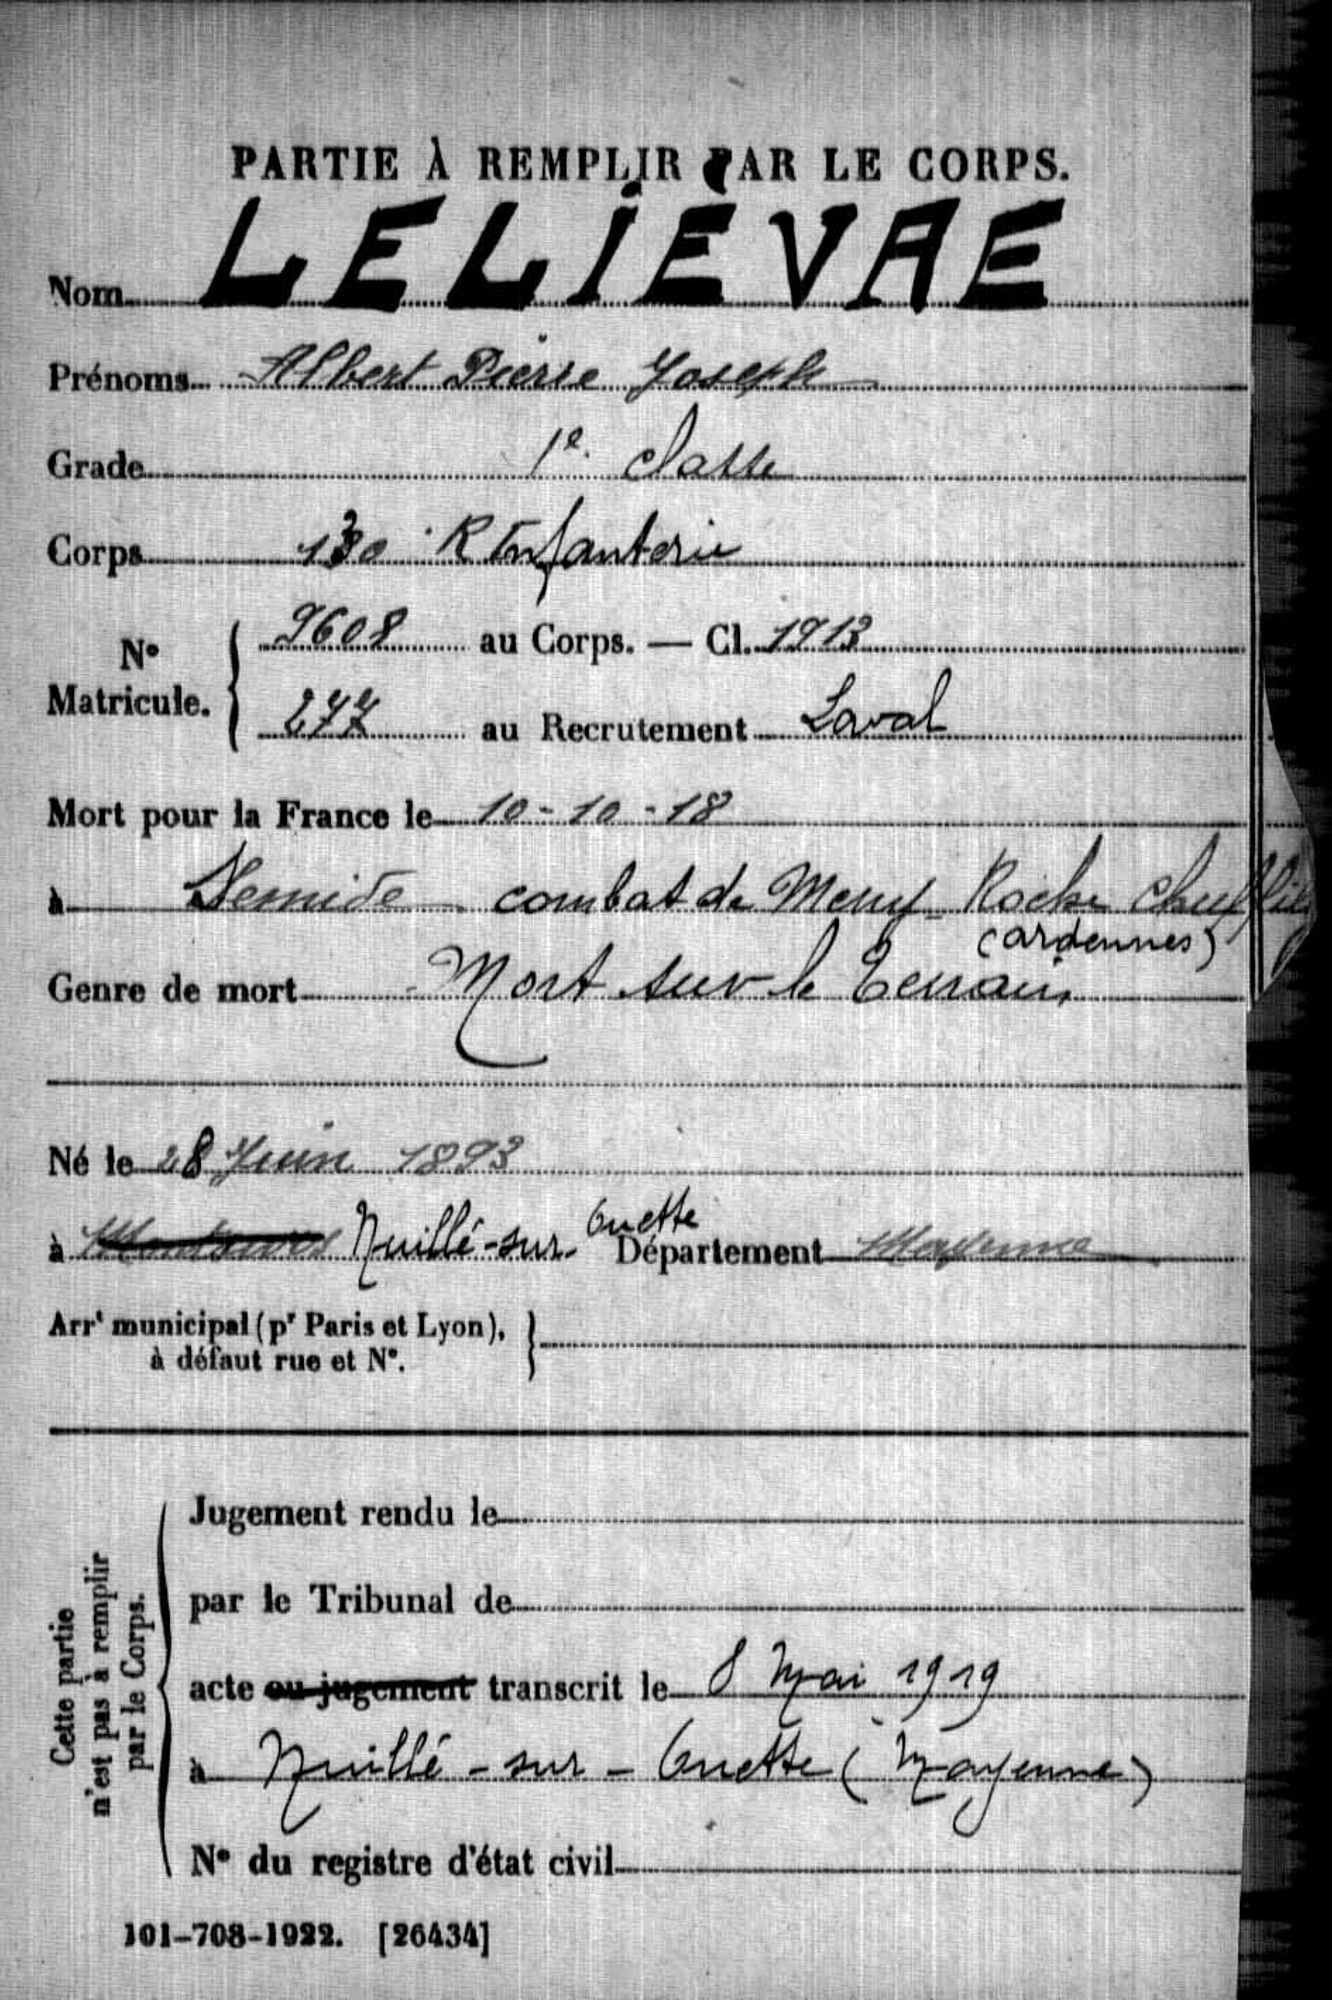 PARTIE À REMPLIR PAR LE CORPS.
Nom LELIÈVRE
Prénoms Albert Pierre Joseph
Grade 1e classe
Corps 130 R Infanterie
N° Matricule. 9608 au Corps. — Cl. 1913
277 au Recrutement Laval
Mort pour la France le 10-10-18
à combat de Roche
(ardennes)
Genre de mort Mort sur le Terrain
Né le 28 Juin 1893
à Nuillé-sur-Ouette Département Mayenne
Arrt municipal (pr Paris et Lyon),
à défaut rue et N°.
Cette partie
n'est pas à remplir
par le Corps.
Jugement rendu le
par le Tribunal de
acte ou jugement transcrit le 8 Mai 1919
à Nuillé-sur-Ouette (Mayenne)
N° du registre d'état civil
101-708-1922. [26434]